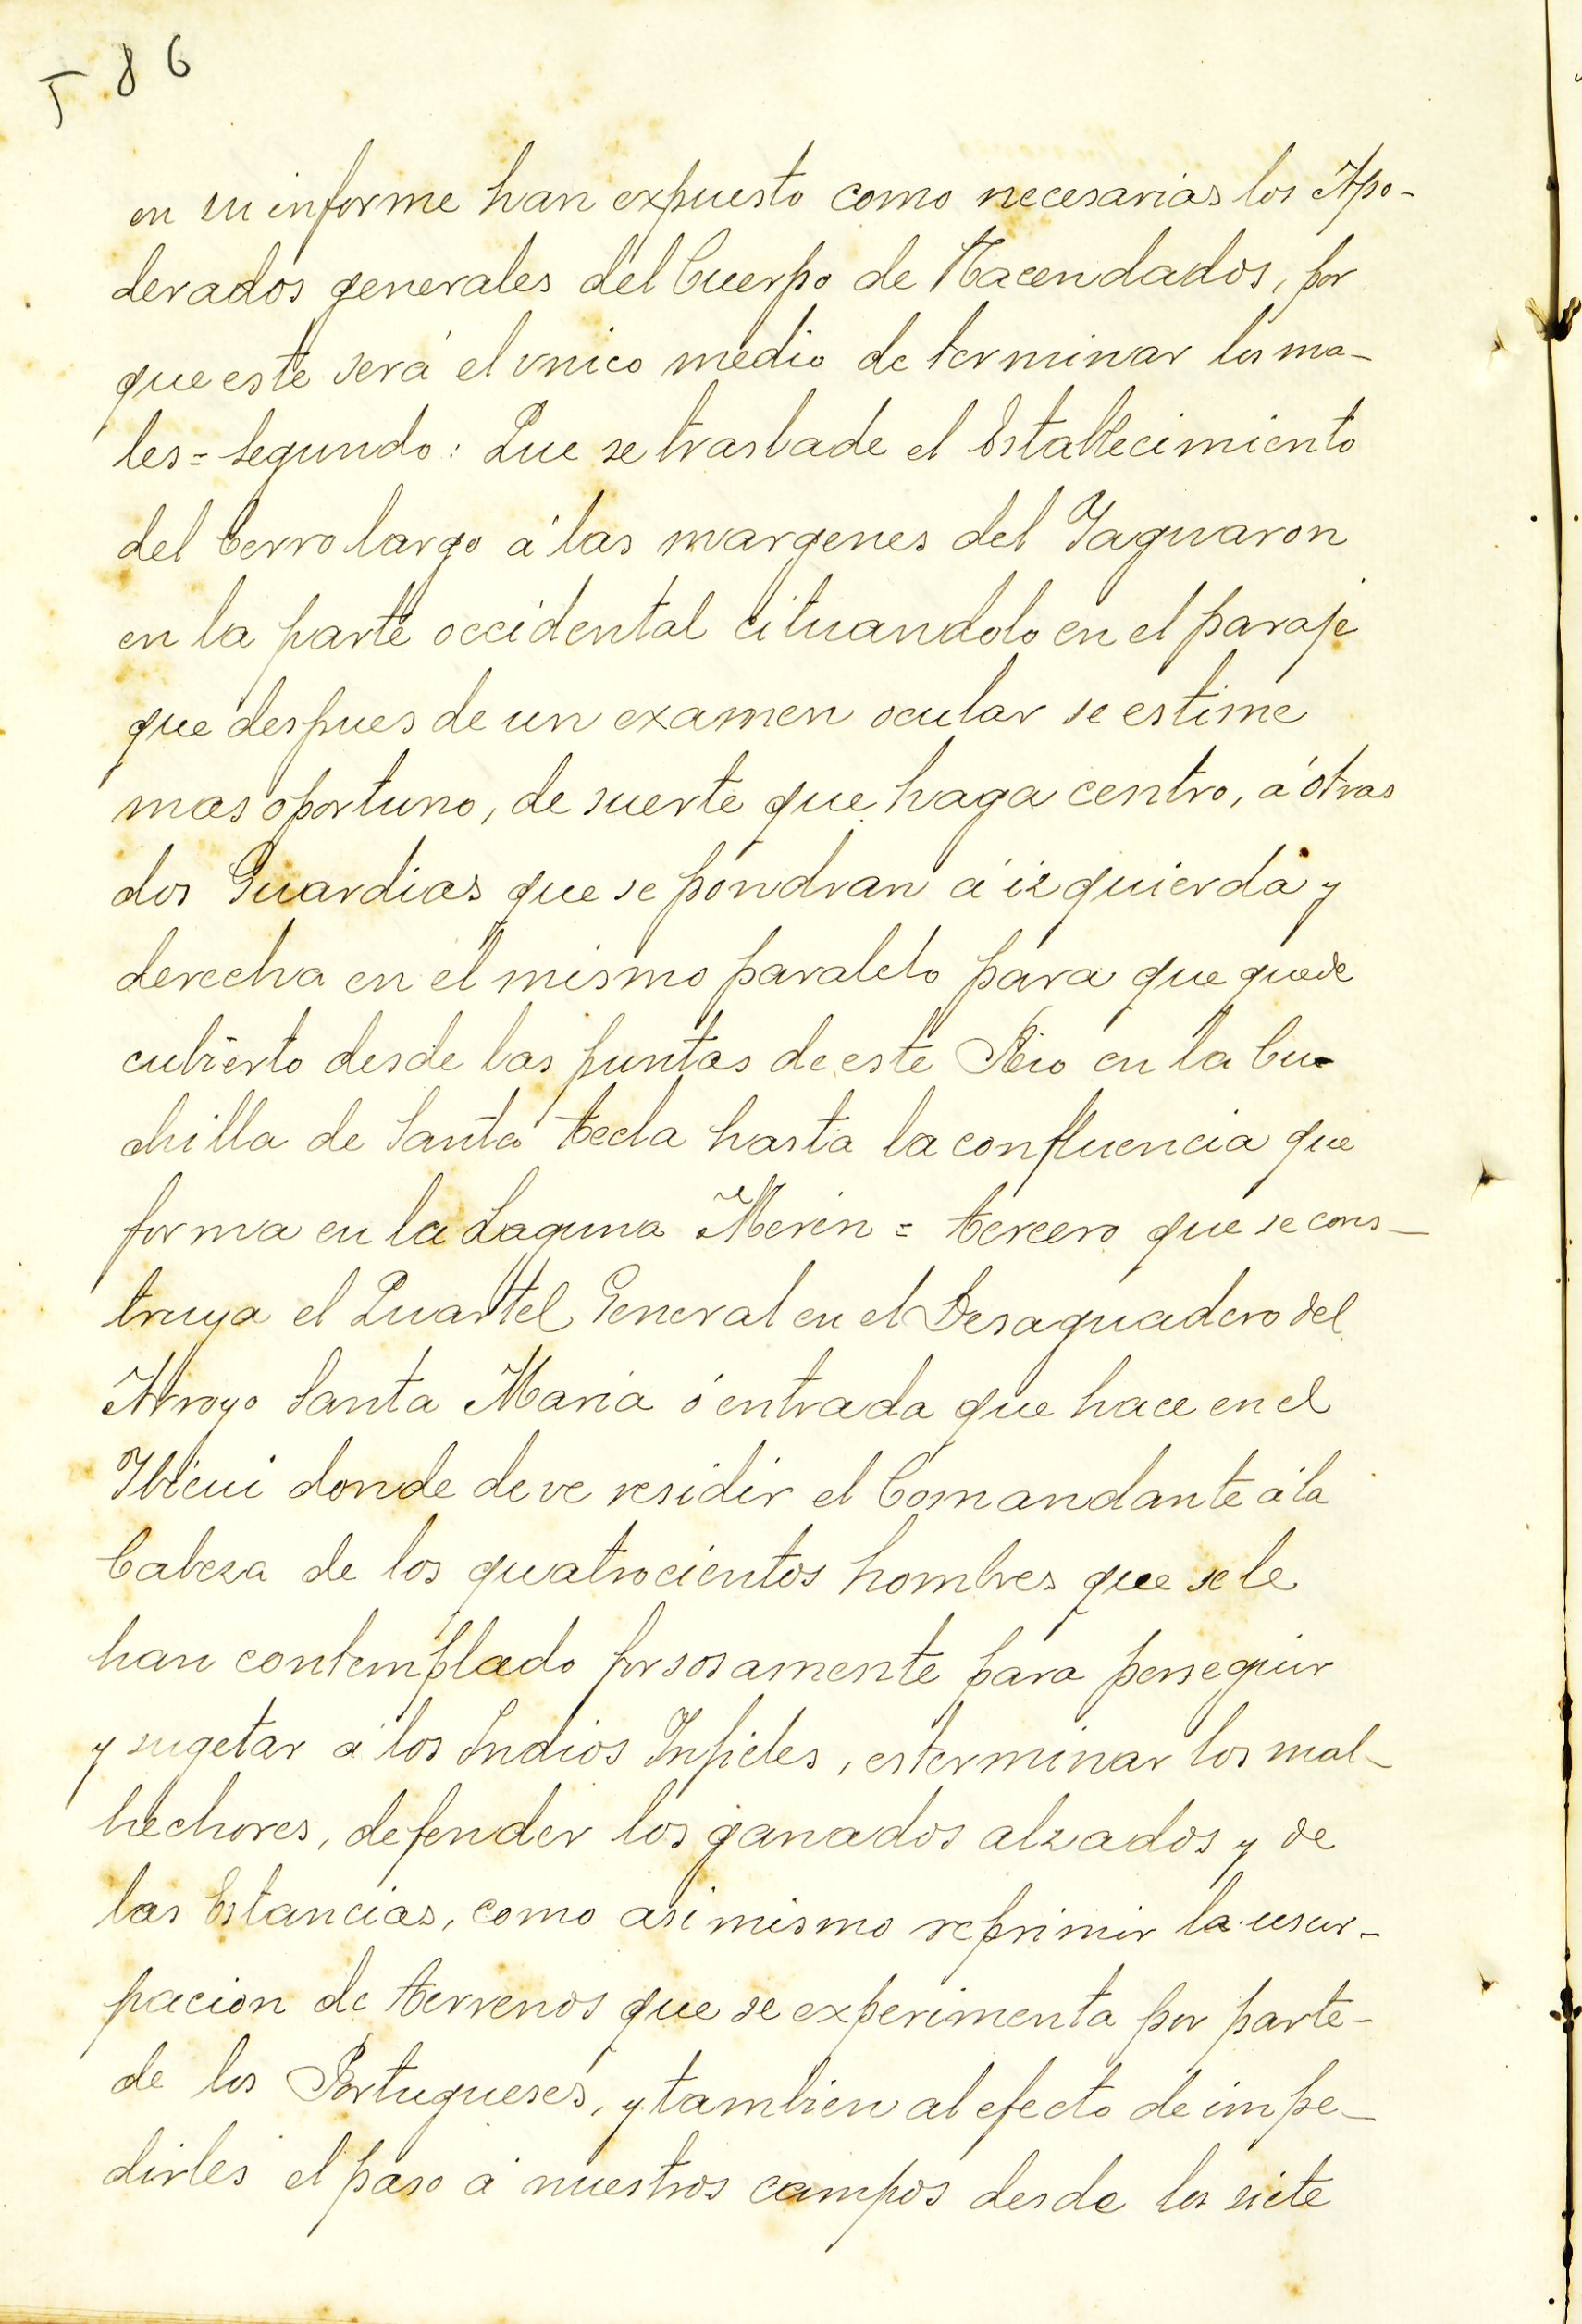 T 86
en su informe han expuesto como necesarias los Apo-
derados generales del Cuerpo de Hacendados, por
que este será el vnico medio de terminar los ma-
les = Segundo: Que se traslade el Establecimiento
del Cerro largo á las margenes del Yaguaron
en la parte occidental cituandolo en el paraje
que despues de un examen ocular se estime
mas oportuno, de suerte que haga centro, á otras
dos Guardias que se pondran á izquierda y
derecha en el mismo paralelo para que quede
cubierto desde las puntas de este Rio en la Cu-
chilla de Santa Tecla hasta la confluencia que
forma en la Laguna Merin = tercero que se cons-
truya el Quartel General en el Desaguadero del
Arroyo Santa Maria ó entrada que hace en el
Ybicui donde deve residir el Comandante á la
Cabeza de los quatrocientos hombres que se le
han contemplado forsosamente para perseguir
y sugetar á los Indios Infieles, esterminar los mal-
hechores, defender los ganados alzados y de
las Estancias, como asi mismo reprimir la usur-
pacion de terrenos que se experimenta por parte-
de los Portugueses, y tambien al efecto de impe-
dirles el paso á nuestros campos desde los siete